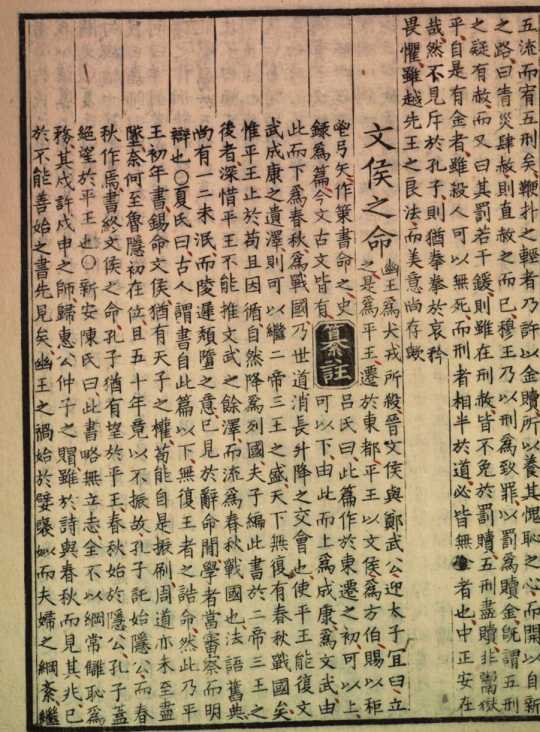 五流而宥五刑矣鞭扑之輕者乃許以金贖所以養其愧恥之心而開以自新
之路曰眚災肆赦則直赦之而已穆王乃以刑爲致罪以罰爲贖金旣謂五刑
之疑有赦而又曰其罰若干鍰則雖在刑赦皆不免於罰贖五刑盡贖非鬻獄
乎自是有金者雖殺人可以無死而刑者相半於道必皆無者也中正安在
哉然不見斥於孔子則猶拳拳於哀矜
畏懼雖越先王之良法而美意尚存歟
文侯之命
幽王爲犬戎所殺晉文侯與鄭武公迎太子宜臼立
之是爲平王遷於東都平王以文侯爲方伯賜以秬
鬯弓矢作策書命之史
錄爲篇今文古文皆有
纂註
呂氏曰此篇作於東遷之初可以上
可以下由此而上爲成康爲文武由
此而下爲春秋爲戰國乃世道消長升降之交會也使平王能復文
武成康之遺澤則可以繼二帝三王之盛天下無復有春秋戰國矣
惟平王止於苟且因循自然降爲列國夫子編此書於二帝三王之
後者深惜平王不能推文武之餘澤而流爲春秋戰國也法語舊典
尚有一二未泯而陵遲頹墮之意已見於辭命閒學者當審察而明
辯也○夏氏曰古人謂書自此篇以下無復王者之誥命然此乃平
王初年書錫命文侯猶有天子之權苟能自是振刷周道亦未至盡
墜奈何至魯隱初在位且五十年竟以不振故孔子託始隱公而春
秋作焉書終文侯之命孔子猶有望於平王春秋始於隱公孔子蓋
絕望於平王也○新安陳氏曰此書略無立志全不以綱常讎恥爲
務其戍許戍申之師歸惠公仲子之賵雖於詩與春秋而見其兆已
於不能善始之書先見矣幽王之禍始於嬖褒姒而夫婦之綱紊繼